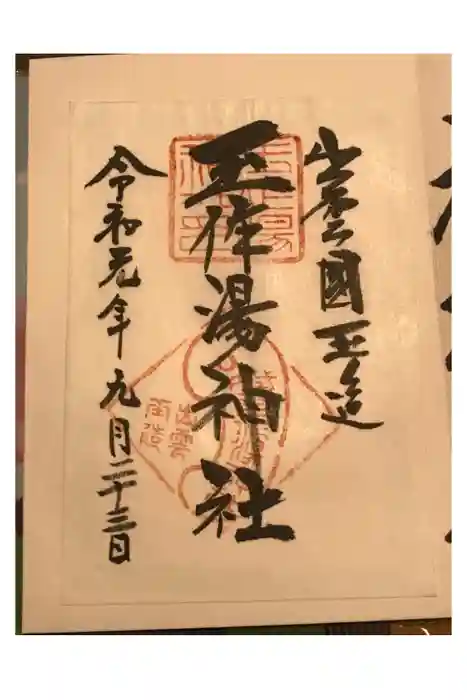 出雲國玉造
玉作湯神社
令和元年九月二十三日
出雲
玉造